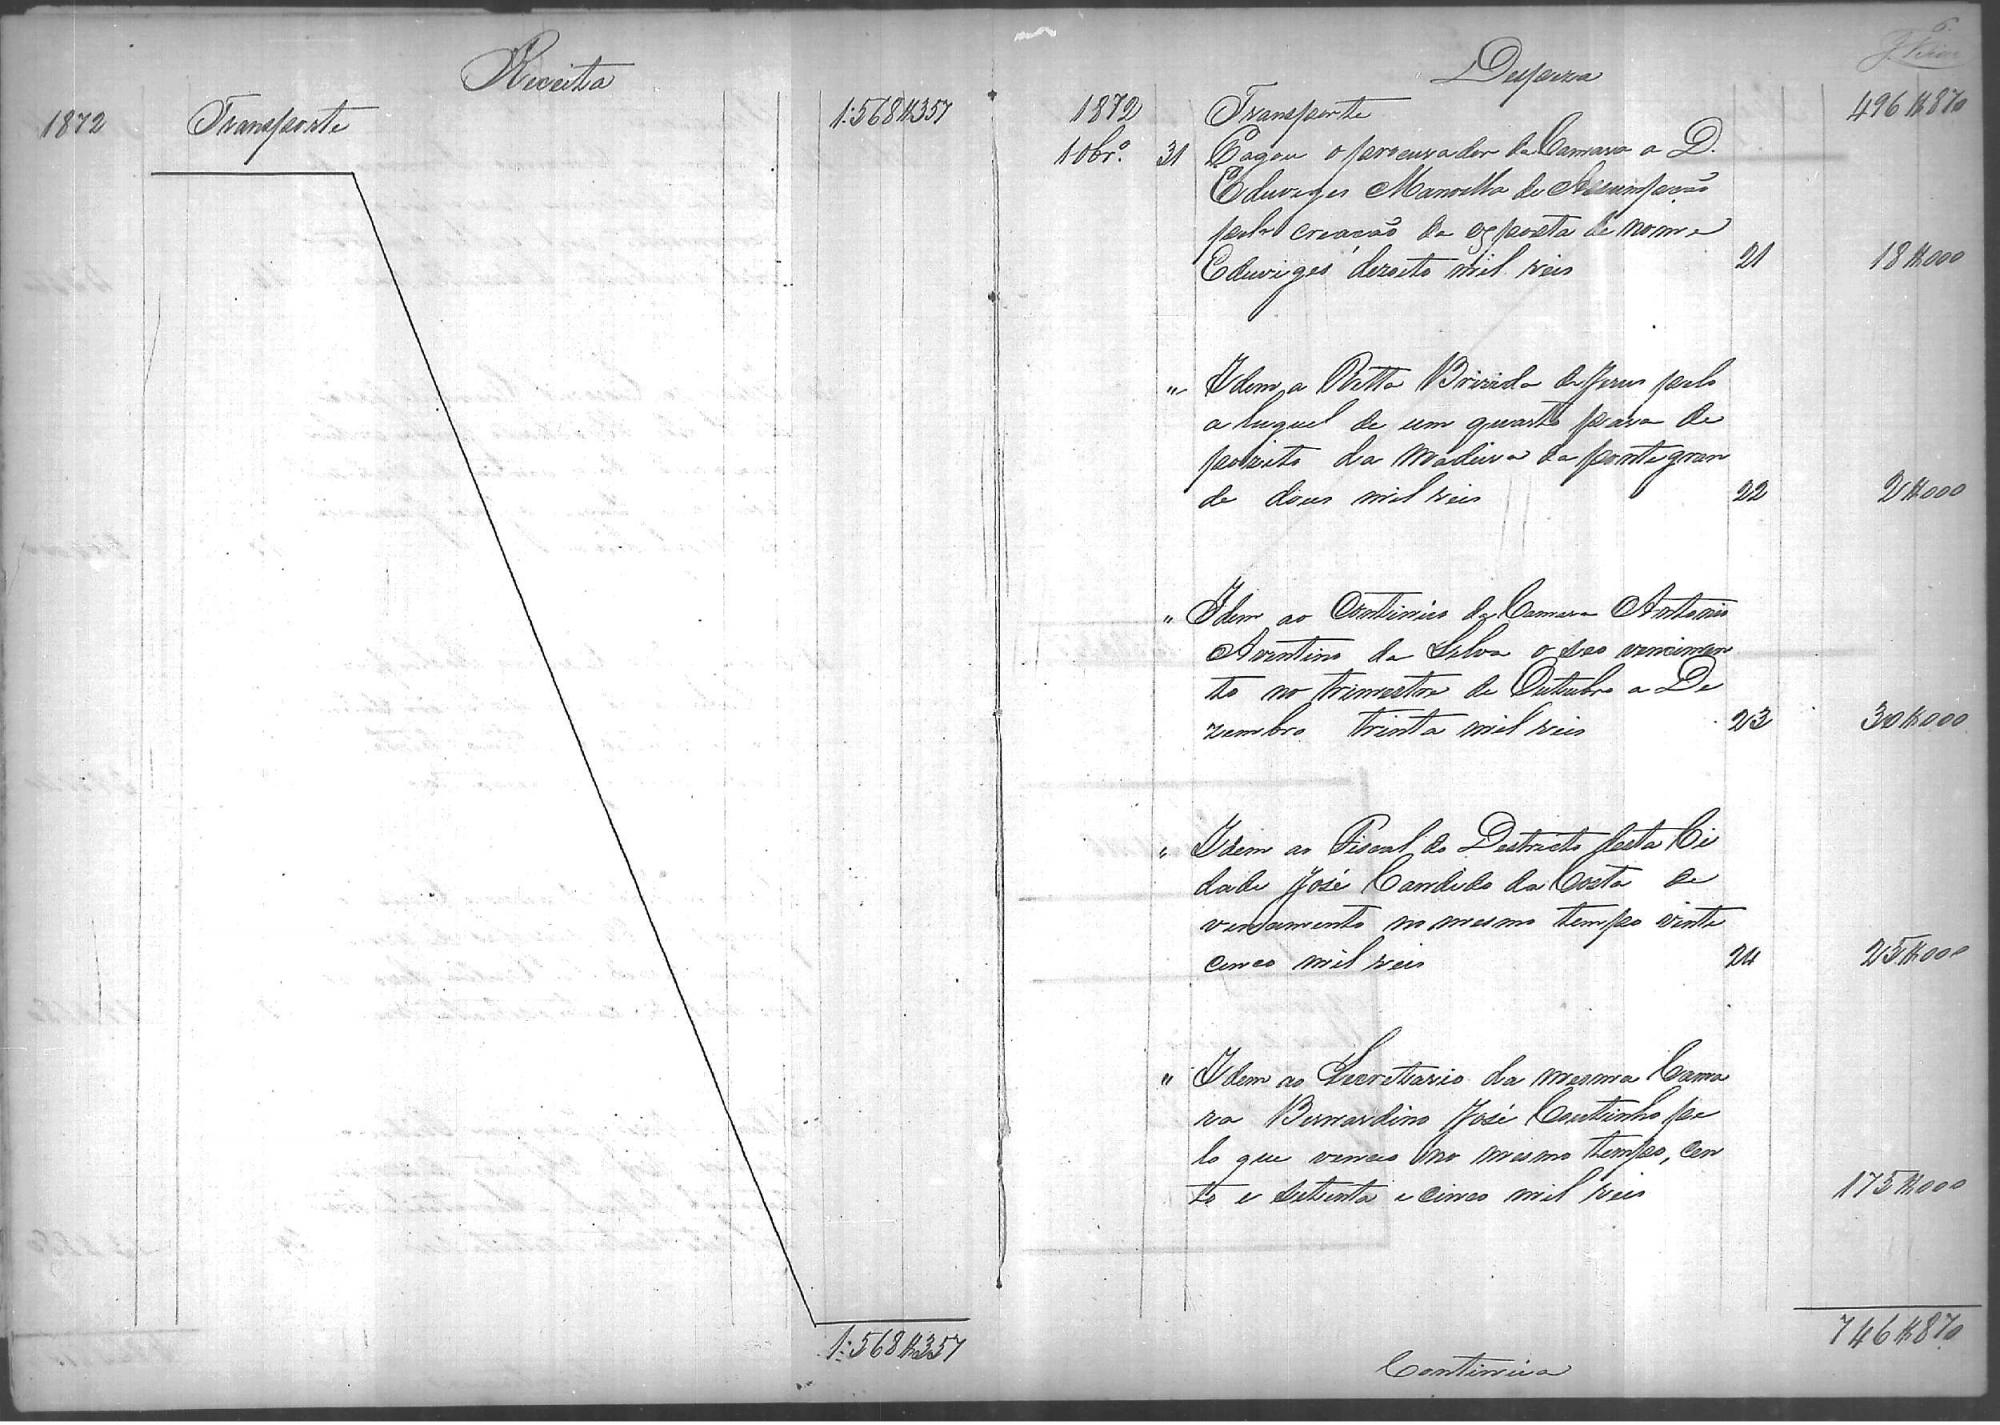 Receita
1872 Transporte 1:568$357
1:568$357
6
Despeza
1872 Transporte 496$870
10br.º 31 Pagou o procurador da Camara a D.
Eduviges Marcella de Assumpção
pela creacão da exposta de nome
Eduviges dezoito mil reis 21 18$000
" Idem a Ritta Brizida de Jesus pelo
aluguel de um quarto para de
pozito da madeira da ponte gran
de dous mil reis 22 2$000
" Idem ao Continuo da Camara Antonio
Aventino da Silva o seo vencimen
to no trimestre de Outubro a De
zembro trinta mil reis 23 30$000
" Idem ao Fiscal do Destricto desta Ci
dade José Candido da Costa de
vencimento no mesmo tempo vinte
cinco mil reis 24 25$000
" Idem ao Secretario da mesma Cama
ra Bernardino José Coutinho pe
lo que venceo no mesmo tempo, cen
to e setenta e cinco mil reis 175$000
746$870
Continúa